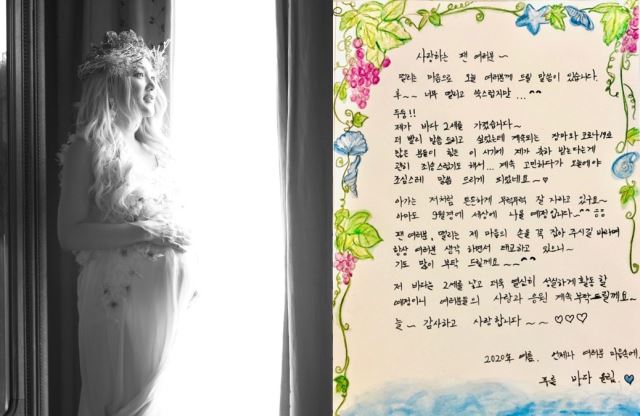 사랑하는 팬 여러분~
떨리는 마음으로 오늘 여러분께 드릴 말씀이 있습니다.
후~~ 너무 떨리고 쑥스럽지만...^^
두둥!!
제가 바다 2세를 가졌습니다~
더 빨리 말씀드리고 싶었는데 계속되는 장마와 코로나19로
많은 분들이 힘든 이 시기에 제가 축하 받는다는게
괜히 조심스럽기도 해서... 계속 고민하다가 오늘에야
조심스레 말씀 드리게 되었네요~♡
아가는 저처럼 튼튼하게 무럭무럭 잘 자라고 있구요~
아마도 9월경에 세상에 나올 예정입니다~^^
팬 여러분, 떨리는 제 마음의 손을 꼭 잡아 주시길 바라며
항상 여러분 생각 하면서 태교하고 있으니~
기도 많이 부탁 드릴께요~~^^
저 바다는 2세를 낳고 더욱 열심히 성실하게 활동할
예정이니 여러분들의 사랑과 응원 계속 부탁드릴께요~
늘~ 감사하고 사랑합니다~~♡♡♡
2020年 여름. 언제나 여러분 마음속에,
푸를 바다 올림.